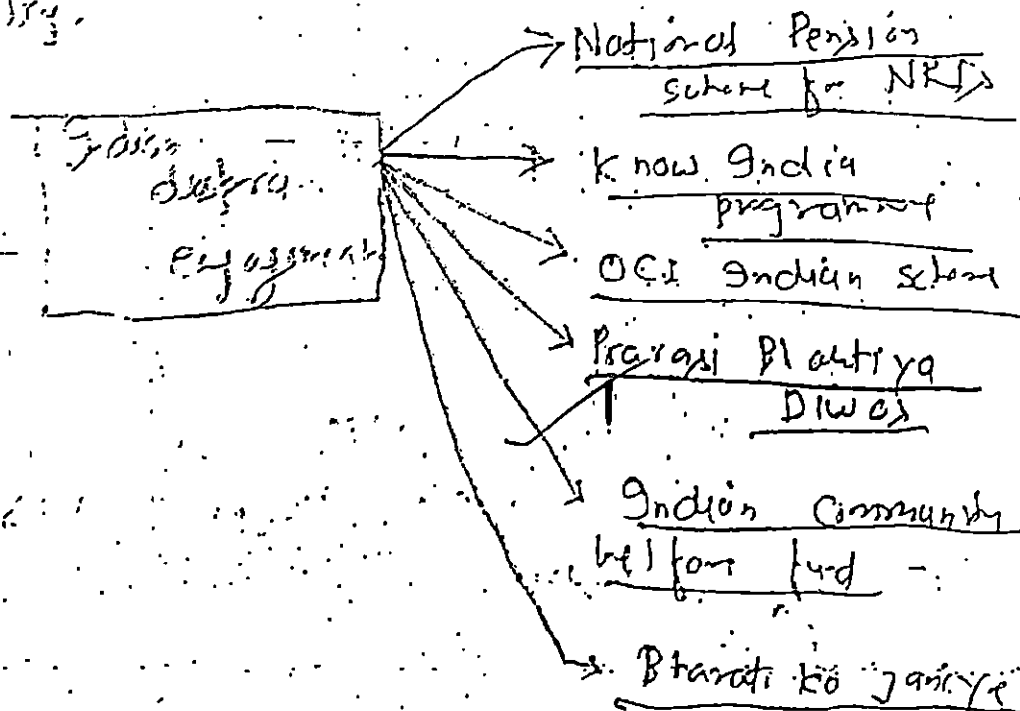 Indian
diaspora
engagement
National Pension
scheme for NRIs
Know India
programme
OCI Indian scheme
Pravasi Bhartiya
Diwas
Indian Community
Welfare fund
Bharat ko janiye